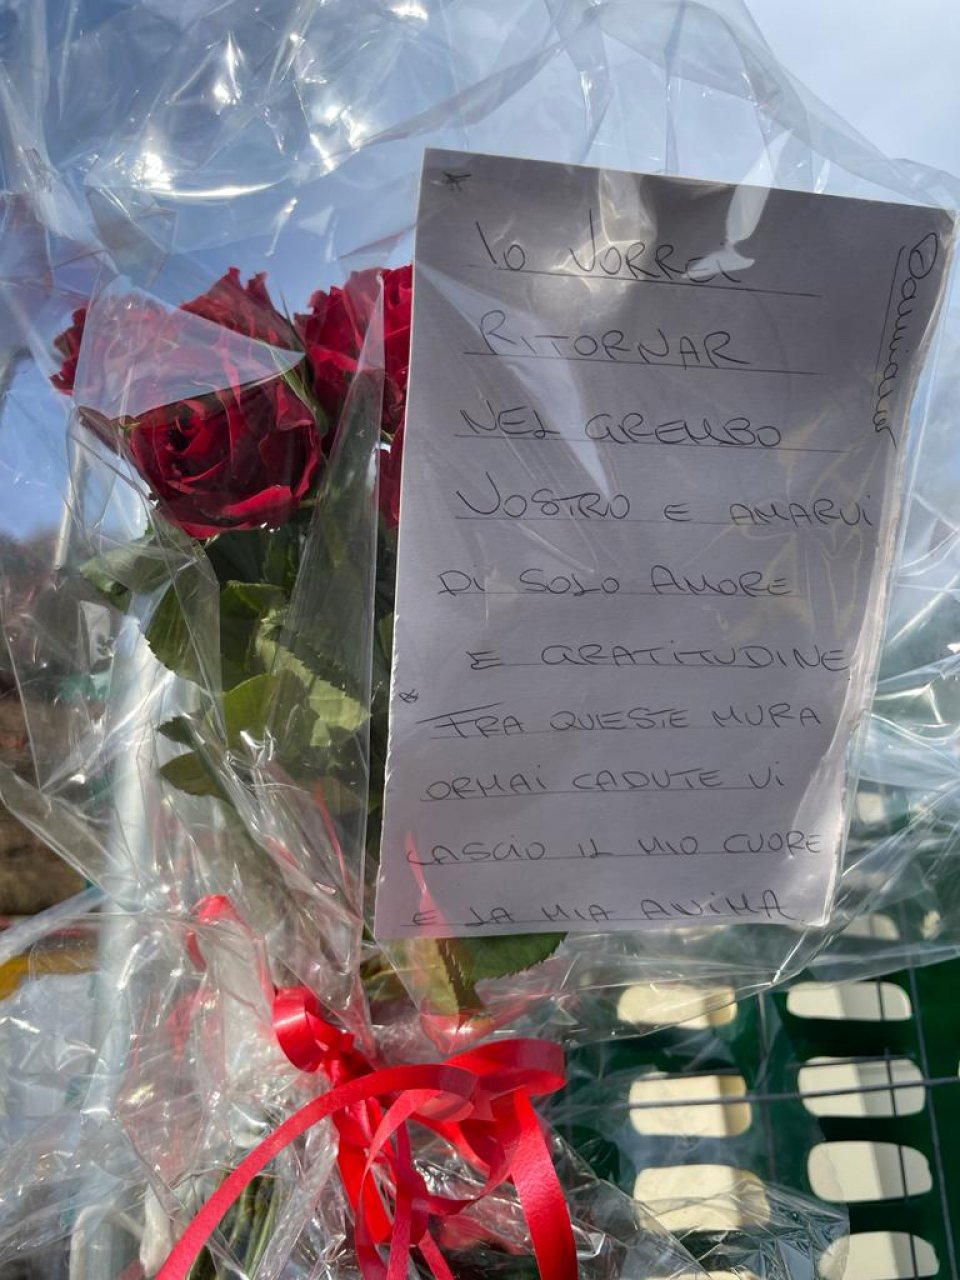 IO VORREI
RITORNAR
NEL GREMBO
VOSTRO E AMARVI
DI SOLO AMORE
E GRATITUDINE
FRA QUESTE MURA
ORMAI CADUTE VI
LASCIO IL MIO CUORE
E LA MIA ANIMA
Damiano